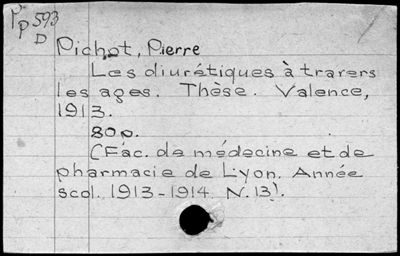 Pp593
D
Pichot, Pierre
Les diurétiques à travers
les ages. Thèse. Valence,
1913.
80p.
(Fac. de médecine et de
pharmacie de Lyon. Année
scol. 1913-1914 N. 13).